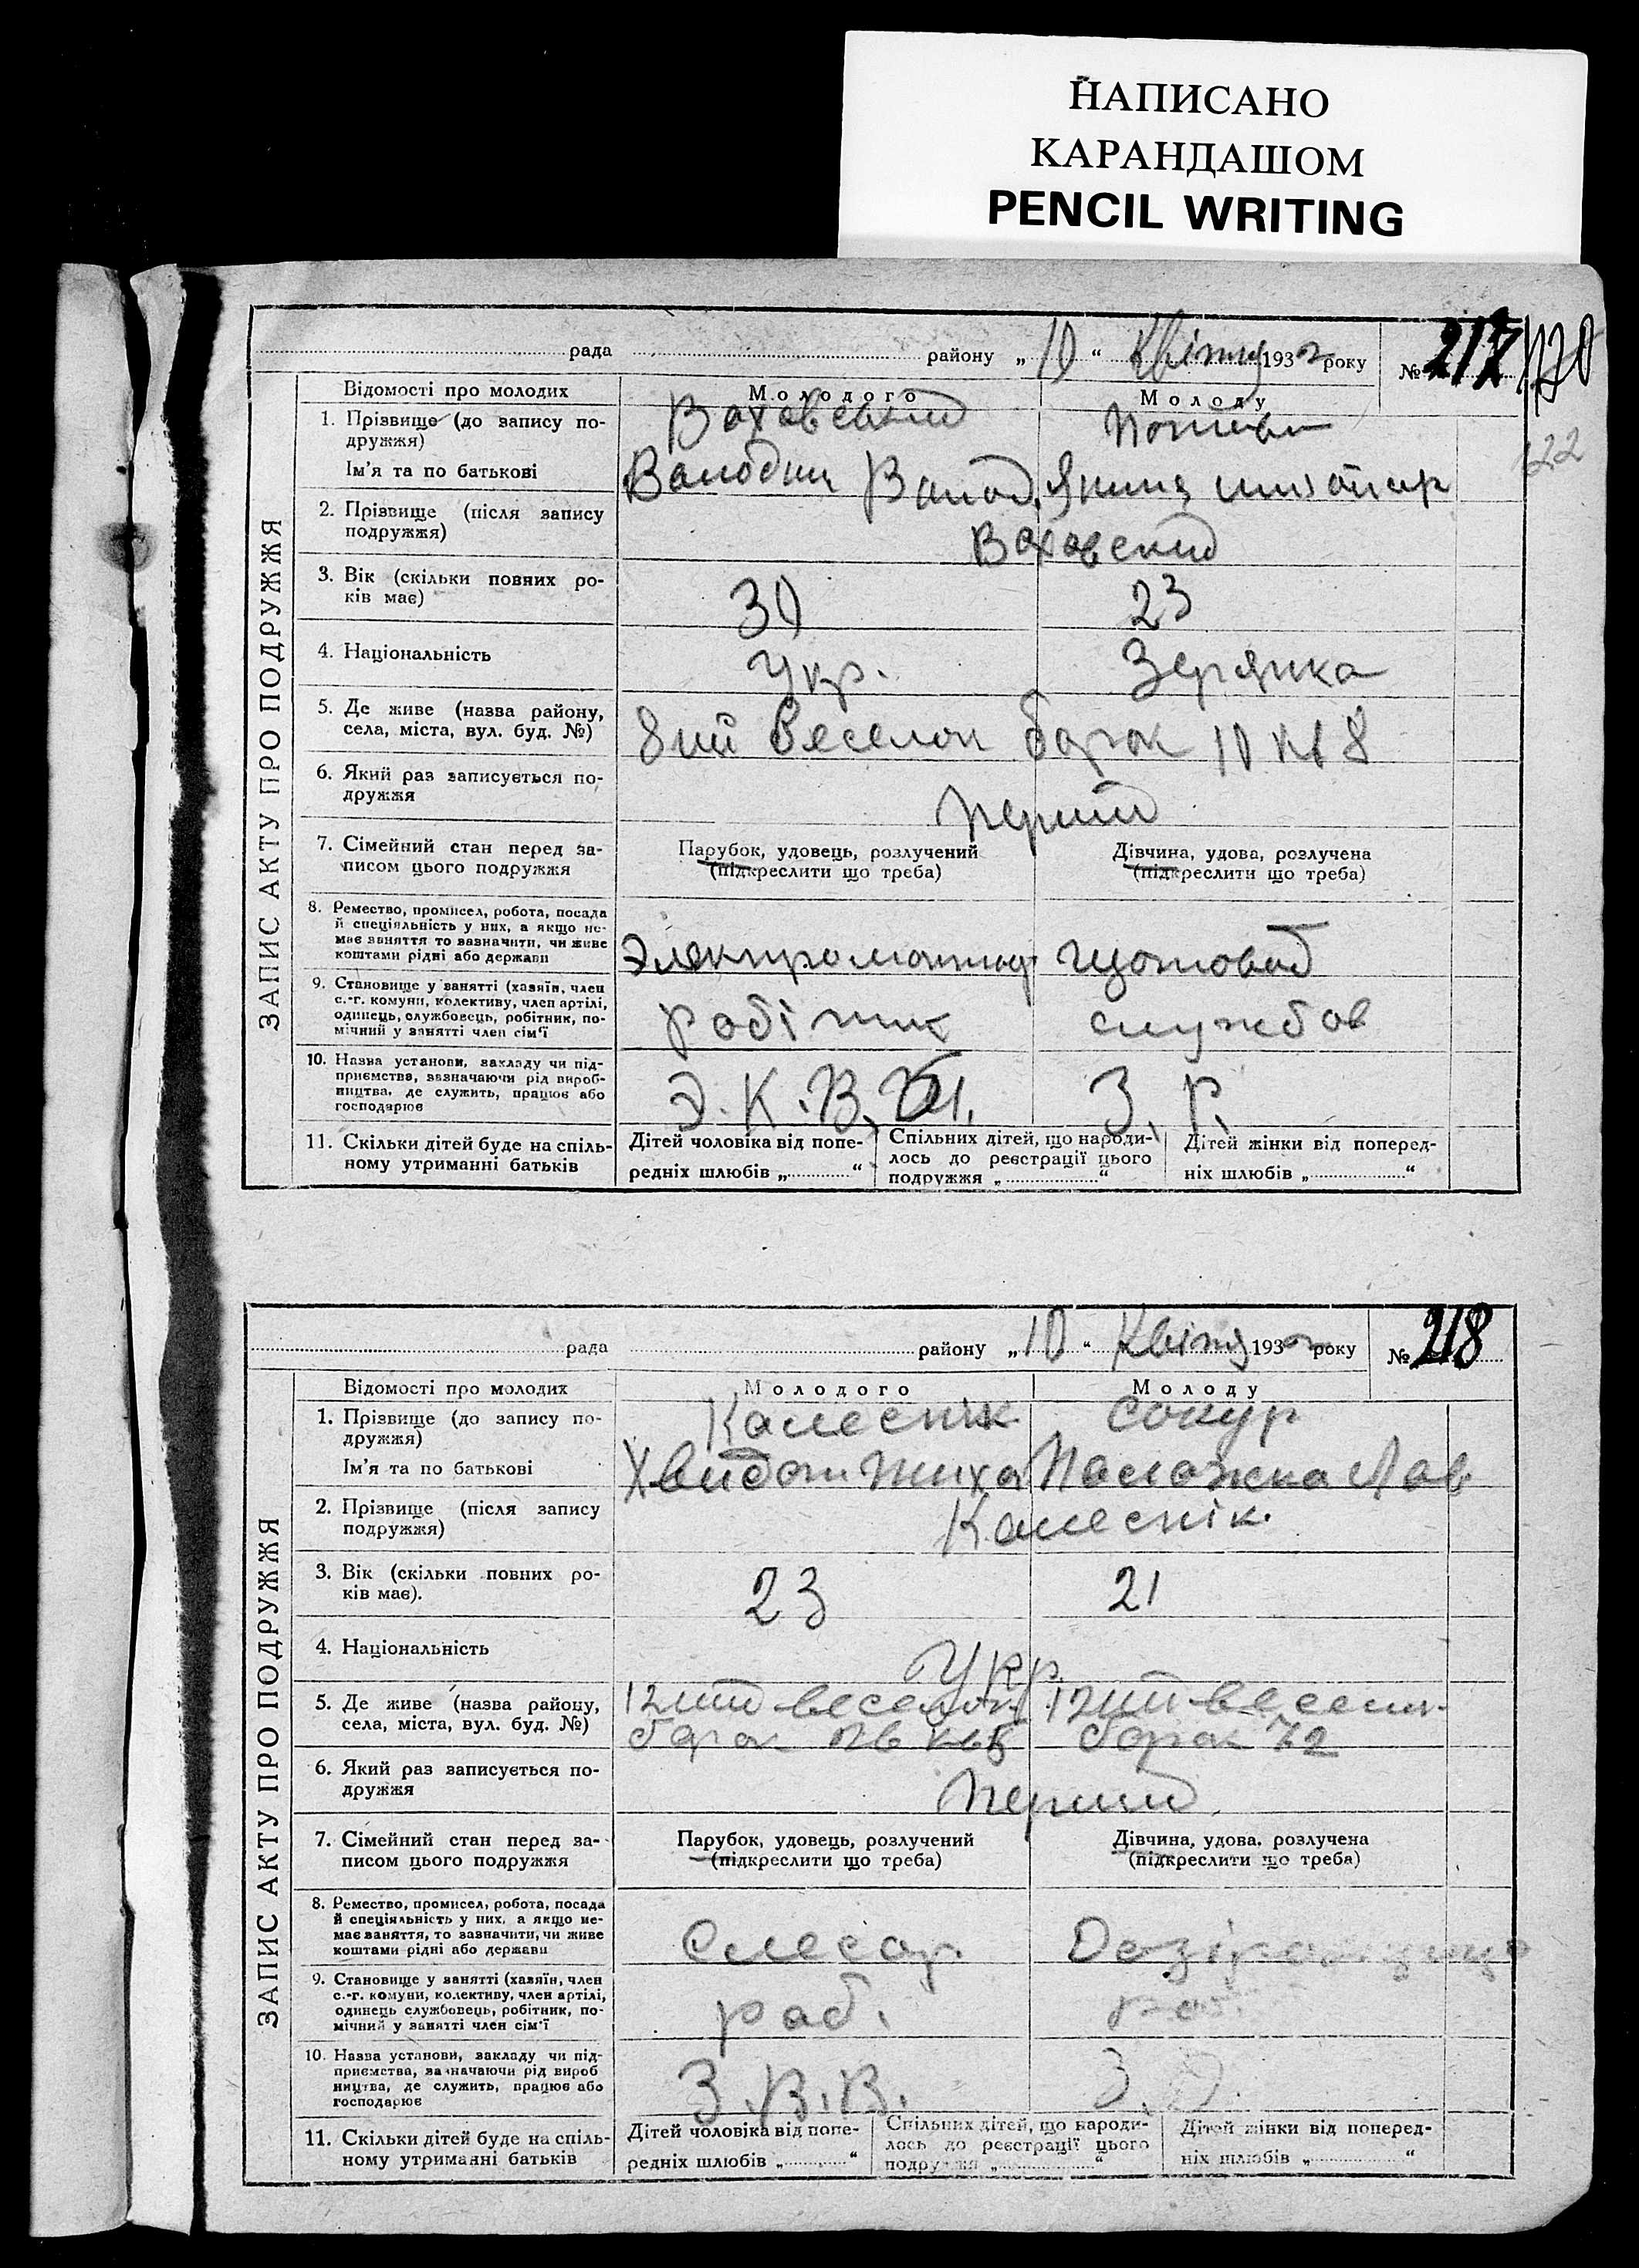 НАПИСАНО
КАРАНДАШОМ
PENCIL WRITING
рада району „10“ Квітня 1932 року № 217
122
ЗАПИС АКТУ ПРО ПОДРУЖЖЯ
Відомості про молодих Молодого Молоду
1. Прізвище (до запису по-
дружжя) Ваховський
Ім'я та по батькові Володим Волод. Якина
2. Прізвище (після запису
подружжя) Ваховский
3. Вік (скільки повних ро-
ків має) 30 23
4. Національність Укр. Зерянка
5. Де живе (назва району,
села, міста, вул. буд. №) 8ий Веселон барак 10 кв 8
6. Який раз записується по-
дружжя Перший
7. Сімейний стан перед за-
писом цього подружжя
Парубок, удовець, розлучений
(підкреслити що треба)
Дівчина, удова, розлучена
(підкреслити що треба)
8. Ремество, промисел, робота, посада
й спеціяльність у них, а якщо не-
має заняття то зазначити, чи живе
коштами рідні або держави
Электромонтьор щотовод
9. Становище у занятті (хазяїн, член
с.-г. комуни, колективу, член артілі,
одинець, службовець, робітник, по-
мічний у занятті член сім'ї
робітник службов
10. Назва установи, закладу чи під-
приємства, зазначаючи рід вироб-
ництва, де служить, працює або
господарює
Э.К.В. З. Р.
11. Скільки дітей буде на спіль-
ному утриманні батьків
Дітей чоловіка від попе-
редніх шлюбів „ “
Спільних дітей, що народи-
лось до реєстрації цього
подружжя „ “
Дітей жінки від поперед-
ніх шлюбів „ “
рада району „10“ Квітня 1932 року № 218
ЗАПИС АКТУ ПРО ПОДРУЖЖЯ
Відомості про молодих Молодого Молоду
1. Прізвище (до запису по-
дружжя) Калеснік Сокур
Ім'я та по батькові Хвидот Миха Положка Лав
2. Прізвище (після запису
подружжя) Калеснік.
3. Вік (скільки повних ро-
ків має). 23 21
4. Національність Укр.
5. Де живе (назва району,
села, міста, вул. буд. №) 12ий веселон 12ий веселон
барак кв 5 барак 72
6. Який раз записується по-
дружжя Перший
7. Сімейний стан перед за-
писом цього подружжя
Парубок, удовець, розлучений
(підкреслити що треба)
Дівчина, удова, розлучена
(підкреслити що треба)
8. Ремество, промисел, робота, посада
й спеціяльність у них, а якщо не-
має заняття, то зазначити, чи живе
коштами рідні або держави
Слесар.
9. Становище у занятті (хазяїн, член
с.-г. комуни, колективу, член артілі,
одинець службовець, робітник, по-
мічний у занятті член сім'ї
раб. раб.
10. Назва установи, закладу чи під-
приємства, зазначаючи рід вироб
ництва, де служить, працює або
господарює
З.В.В. З.
11. Скільки дітей буде на спіль-
ному утриманні батьків
Дітей чоловіка від попе-
редніх шлюбів „ “
Спільних дітей, що народи-
лось до реєстрації цього
подружжя „ “
Дітей жінки від поперед-
ніх шлюбів „ “